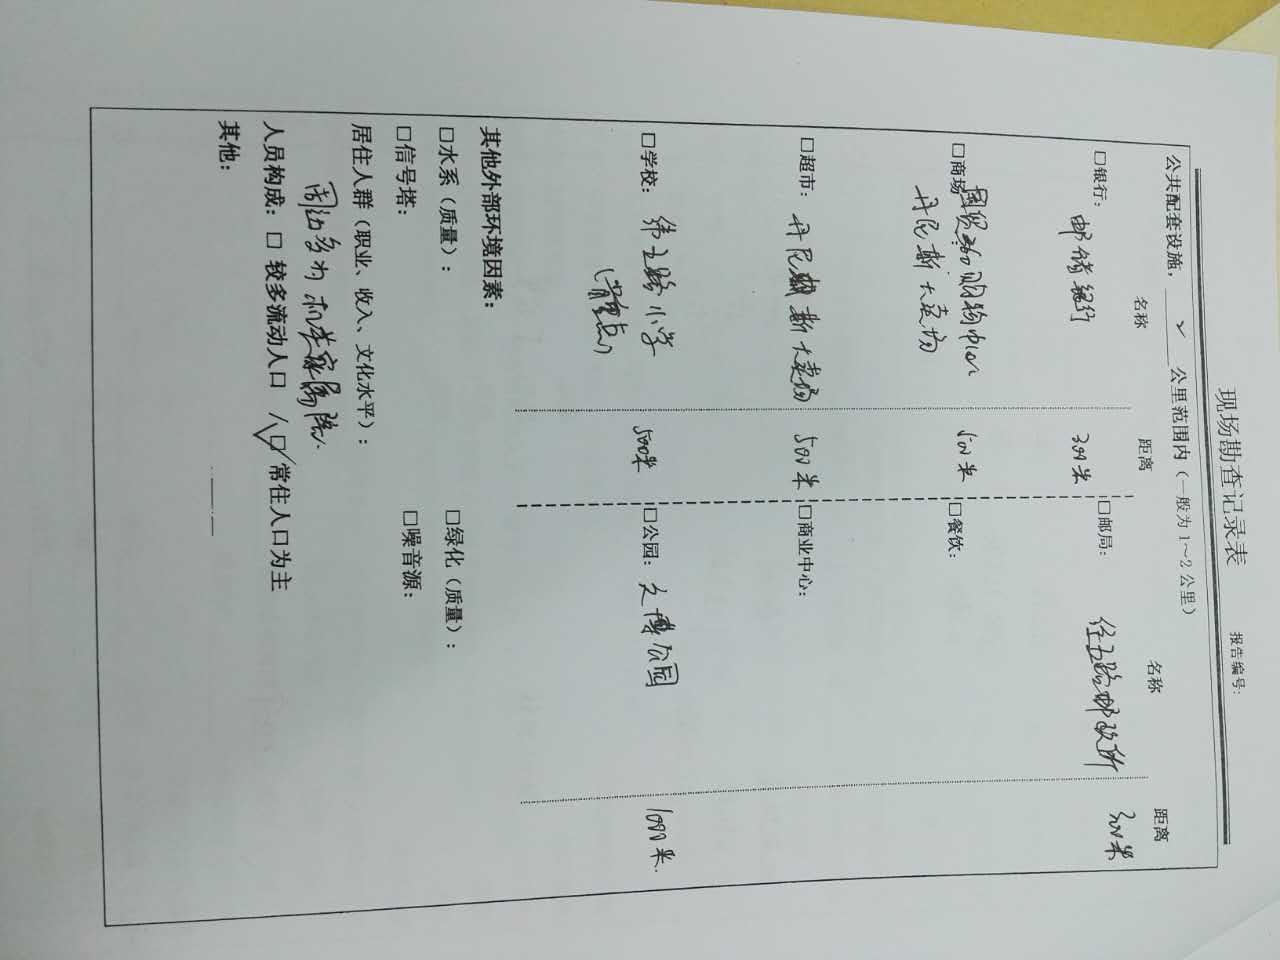 现场勘查记录表
报告编号:
公共配套设施, ✓ 公里范围内（一般为 1～2 公里）
名称 距离 名称 距离
□银行: 邮储银行 300米 □邮局: 经五路邮政所 300米
□商场: 国贸360购物中心 500米 □餐饮:
丹尼斯大卖场
□超市: 丹尼斯大卖场 500米 □商业中心:
□学校: 纬五路小学 500米 □公园: 文博公园 1000米.
其他外部环境因素:
□水系（质量）: □绿化（质量）:
□信号塔: □噪音源:
居住人群（职业、收入、文化水平）:
周边多为机关家属院.
人员构成: □ 较多流动人口 / ☑ 常住人口为主
其他: